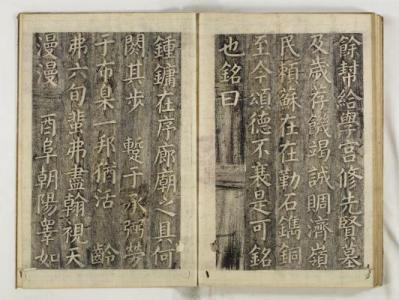 餘幇給學宮修先賢墓
及歲荐饑竭誠賙濟嶺
民賴蘇在在勤石鐫銅
至今頌德不衰是可銘
也銘曰
鍾鏞在序廊廟之具何
閼其步蹔于承弼勞
于布臬一邦猶活齡
弗六旬蜚弗盡翰視天
漫漫酉阜朝陽睪如